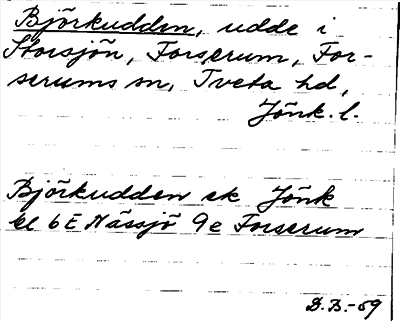 Björkudden, udde i
Storsjön, Forserum, For-
serums sn, Tveta hd,
Jönk. l.
Björkudden ek Jönk
bl 6 E Nässjö 9e Forserum
D.B.-59